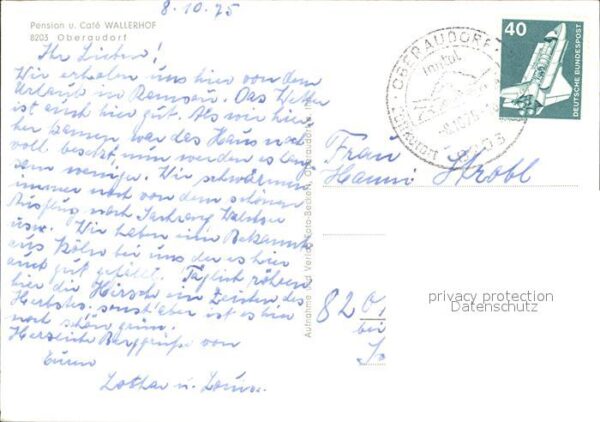 8.10.75
Pension u. Café WALLERHOF
8203 Oberaudorf
Ihr Lieben!
Wir erholen uns hier von dem
Urlaub in Ramsau. Das Wetter
ist auch hier gut. Als wir hier
her kamen war das Haus noch
voll besetzt, nun werden es lang
sam weniger. Wir schwärmen
immer noch von dem schönen
Ausflug nach Sachrang Walchsee
usw. Wir haben eine Bekannte
aus Köln bei uns der es hier
auch gut gefällt. Täglich röhren
hier die Hirsche ein Zeichen des
Herbstes, sonst aber ist es hier
noch schön grün.
Herzliche Berggrüße von
Euren
Lothar u.
Aufnahme und Verlag Foto-Oberaudorf
OBERAUDORF
Inntal
Luftkurort
8203
40
DEUTSCHE BUNDESPOST
Frau
Hanni Strobl
820
bei
privacy protection
Datenschutz